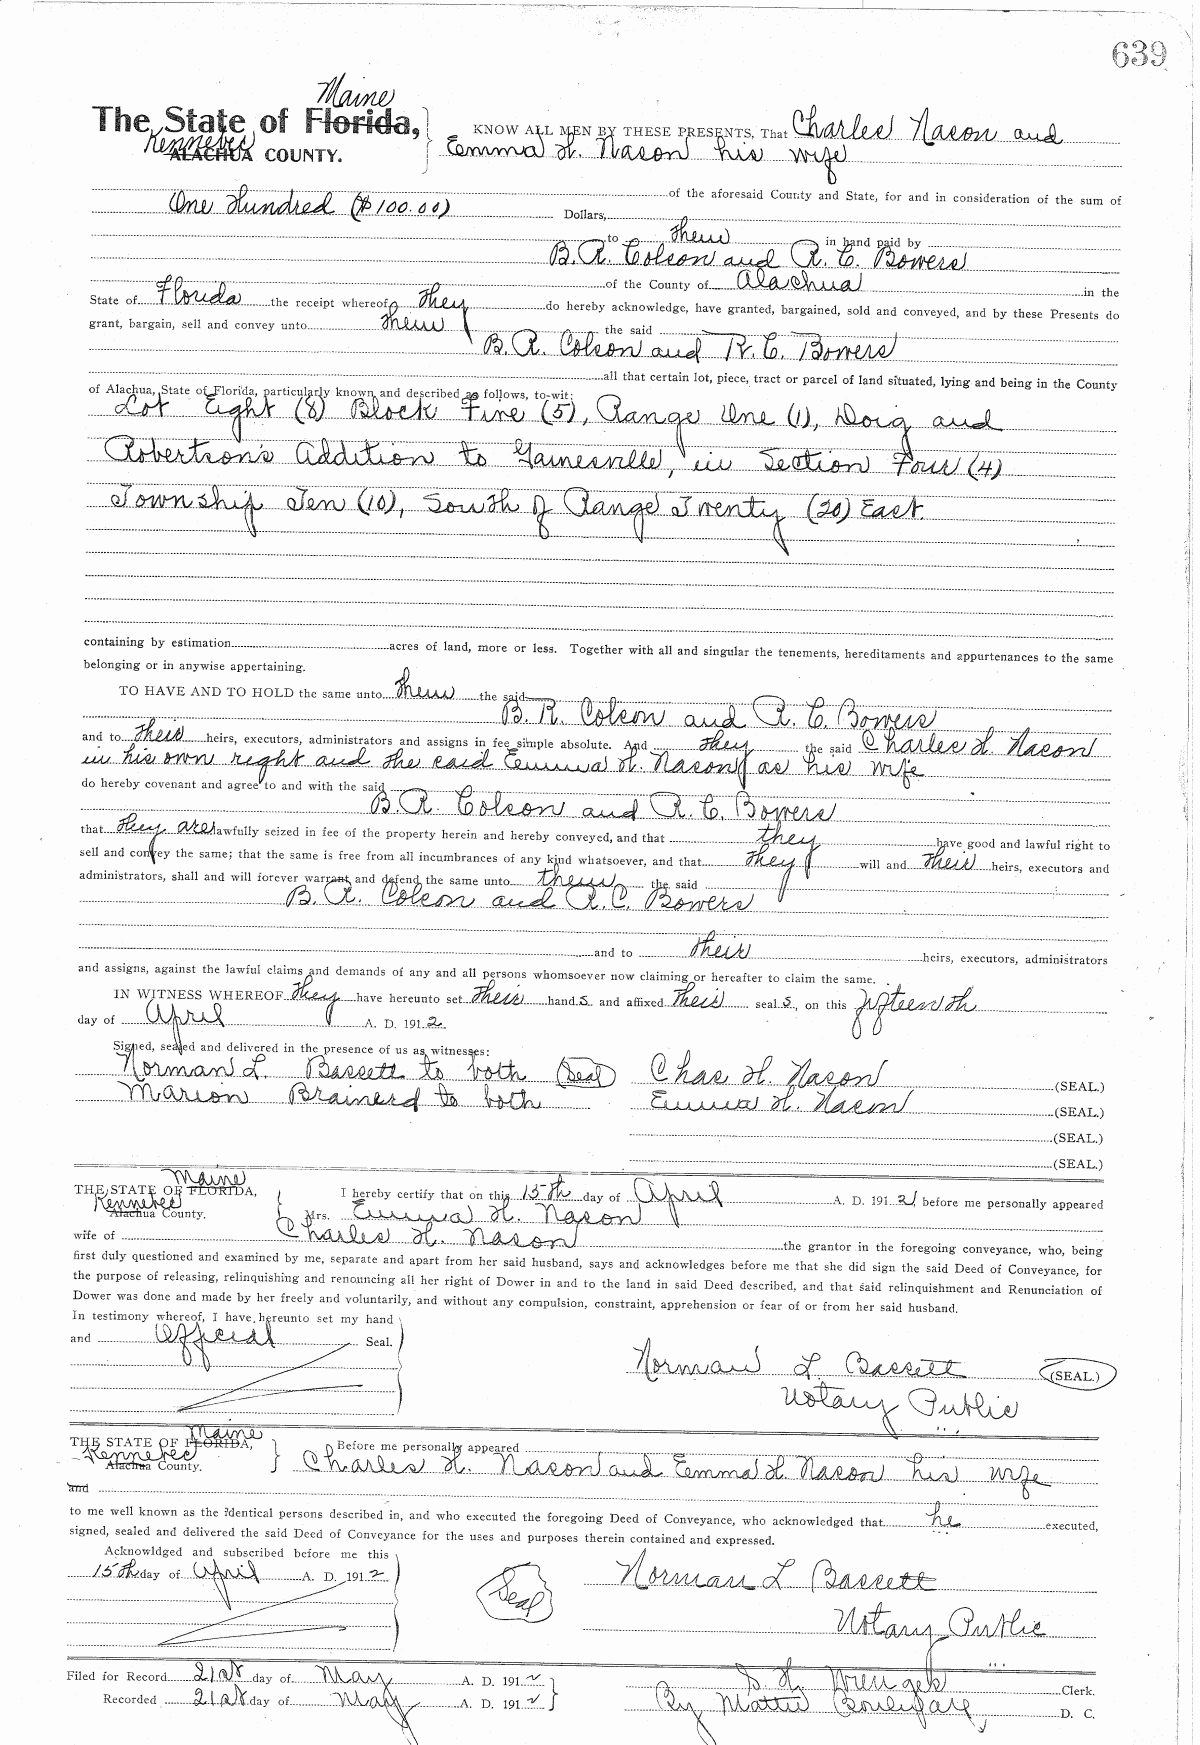 639
Maine
The State of Florida,
Kennebec
ALACHUA COUNTY.
KNOW ALL MEN BY THESE PRESENTS, That Charles Nason and
Emma H. Nason his wife
of the aforesaid County and State, for and in consideration of the sum of
One Hundred ($100.00) Dollars,
to them in hand paid by
B. R. Colson and R. C. Bowers
of the County of Alachua in the
State of Florida the receipt whereof they do hereby acknowledge, have granted, bargained, sold and conveyed, and by these Presents do
grant, bargain, sell and convey unto them the said
B. R. Colson and R. C. Bowers
all that certain lot, piece, tract or parcel of land situated, lying and being in the County
of Alachua, State of Florida, particularly known and described as follows, to-wit:
Lot Eight (8) Block Five (5), Range One (1), Doig and
Robertson's Addition to Gainesville, in Section Four (4)
Township Ten (10), South of Range Twenty (20) East.
containing by estimation acres of land, more or less. Together with all and singular the tenements, hereditaments and appurtenances to the same
belonging or in anywise appertaining.
TO HAVE AND TO HOLD the same unto them the said
B. R. Colson and R. C. Bowers
and to their heirs, executors, administrators and assigns in fee simple absolute. And they the said Charles H. Nason
in his own right and the said Emma H. Nason as his wife
do hereby covenant and agree to and with the said
B. R. Colson and R. C. Bowers
that they are lawfully seized in fee of the property herein and hereby conveyed, and that they have good and lawful right to
sell and convey the same; that the same is free from all incumbrances of any kind whatsoever, and that they will and their heirs, executors and
administrators, shall and will forever warrant and defend the same unto them the said
B. R. Colson and R. C. Bowers
and to their heirs, executors, administrators
and assigns, against the lawful claims and demands of any and all persons whomsoever now claiming or hereafter to claim the same.
IN WITNESS WHEREOF they have hereunto set their hands and affixed their seals, on this fifteenth
day of April A. D. 1912.
Signed, sealed and delivered in the presence of us as witnesses:
Norman L. Bassett to both (Seal) Chas H. Nason (SEAL.)
Marion Brainerd to both Emma H. Nason (SEAL.)
(SEAL.)
(SEAL.)
Maine
THE STATE OF FLORIDA,
Kennebec
Alachua County.
I hereby certify that on this 15th day of April A. D. 1912, before me personally appeared
Mrs. Emma H. Nason
wife of Charles H. Nason the grantor in the foregoing conveyance, who, being
first duly questioned and examined by me, separate and apart from her said husband, says and acknowledges before me that she did sign the said Deed of Conveyance, for
the purpose of releasing, relinquishing and renouncing all her right of Dower in and to the land in said Deed described, and that said relinquishment and Renunciation of
Dower was done and made by her freely and voluntarily, and without any compulsion, constraint, apprehension or fear of or from her said husband.
In testimony whereof, I have hereunto set my hand
and Official Seal.
Norman L Bassett (SEAL.)
Notary Public
Maine
THE STATE OF FLORIDA,
Kennebec
Alachua County.
Before me personally appeared
Charles H. Nason and Emma H. Nason his wife
and
to me well known as the identical persons described in, and who executed the foregoing Deed of Conveyance, who acknowledged that he executed,
signed, sealed and delivered the said Deed of Conveyance for the uses and purposes therein contained and expressed.
Acknowldged and subscribed before me this
15th day of April A. D. 1912
Seal
Norman L Bassett
Notary Public
Filed for Record 21st day of May A. D. 1912
Recorded 21st day of May A. D. 1912
S. H. Wienges Clerk.
By Mattie D. C.